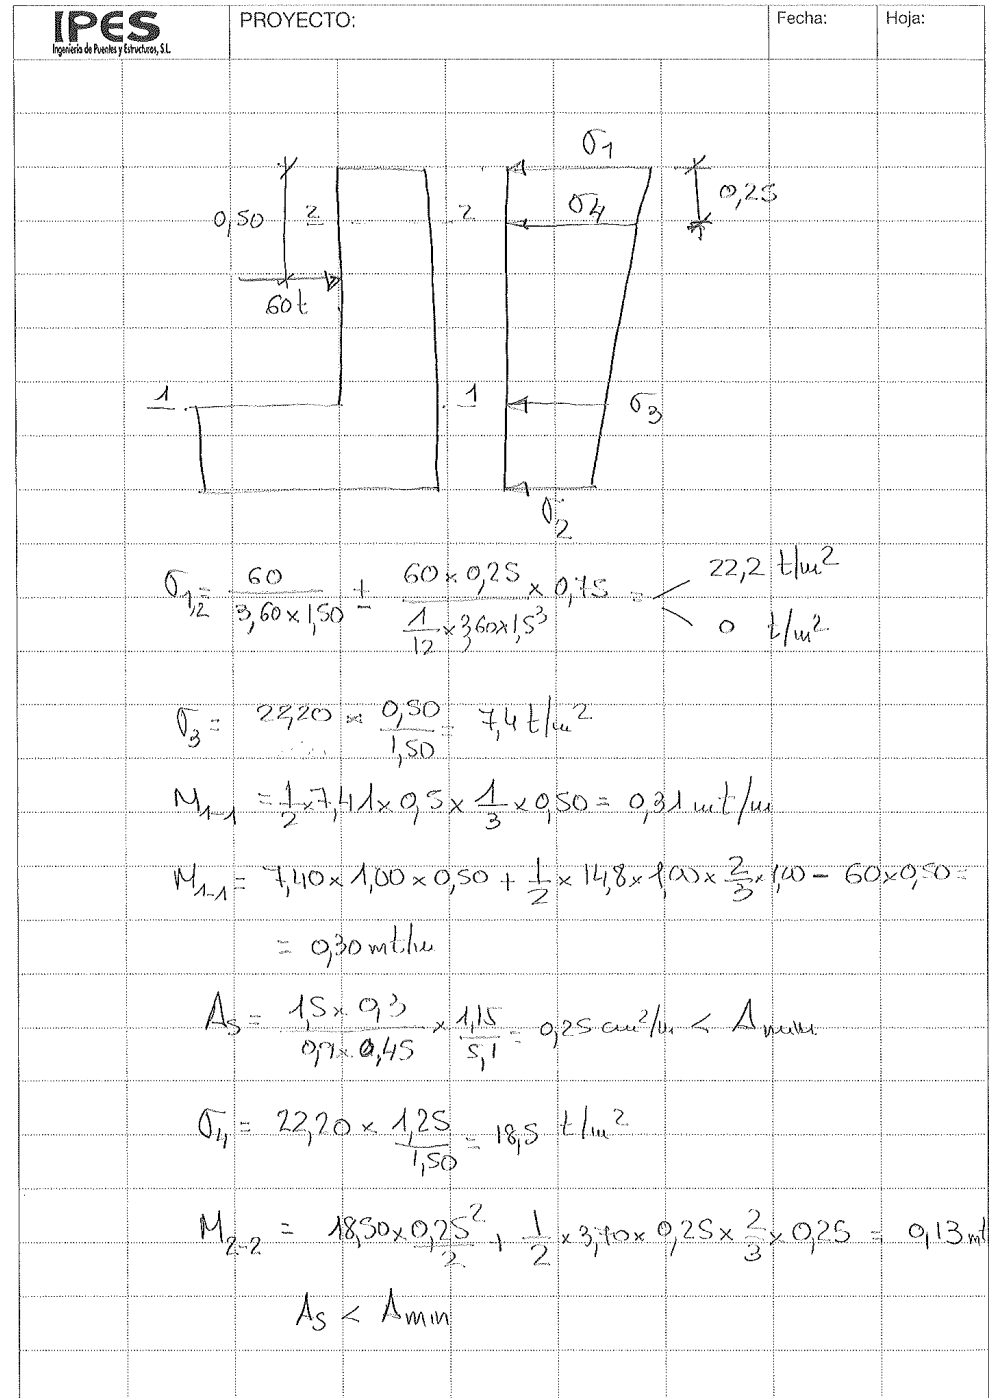 IPES
Ingeniería de Puentes y Estructuras, S.L.
PROYECTO:
Fecha:
Hoja:
σ1
0,25
0,50 2 2 σ4
60t
1 1 σ3
σ2
σ1,2 = 60 / 3,60 x 1,50 ± 60 x 0,25 / 1/12 x 3,60 x 1,5³ x 0,75 = 22,2 t/m²
0 t/m²
σ3 = 22,20 x 0,50 / 1,50 = 7,4 t/m²
M1-1 = 1/2 x 7,41 x 0,5 x 1/3 x 0,50 = 0,31 mt/m
M1-1 = 7,40 x 1,00 x 0,50 + 1/2 x 14,8 x 1,00 x 2/3 x 1,00 - 60 x 0,50 =
= 0,30 mt/m
As = 1,5 x 0,3 / 0,9 x 0,45 x 1,15 / 5,1 = 0,25 cm²/m < Amin
σ4 = 22,20 x 1,25 / 1,50 = 18,5 t/m²
M2-2 = 18,50 x 0,25² / 2 + 1/2 x 3,70 x 0,25 x 2/3 x 0,25 = 0,13 mt
As < Amin